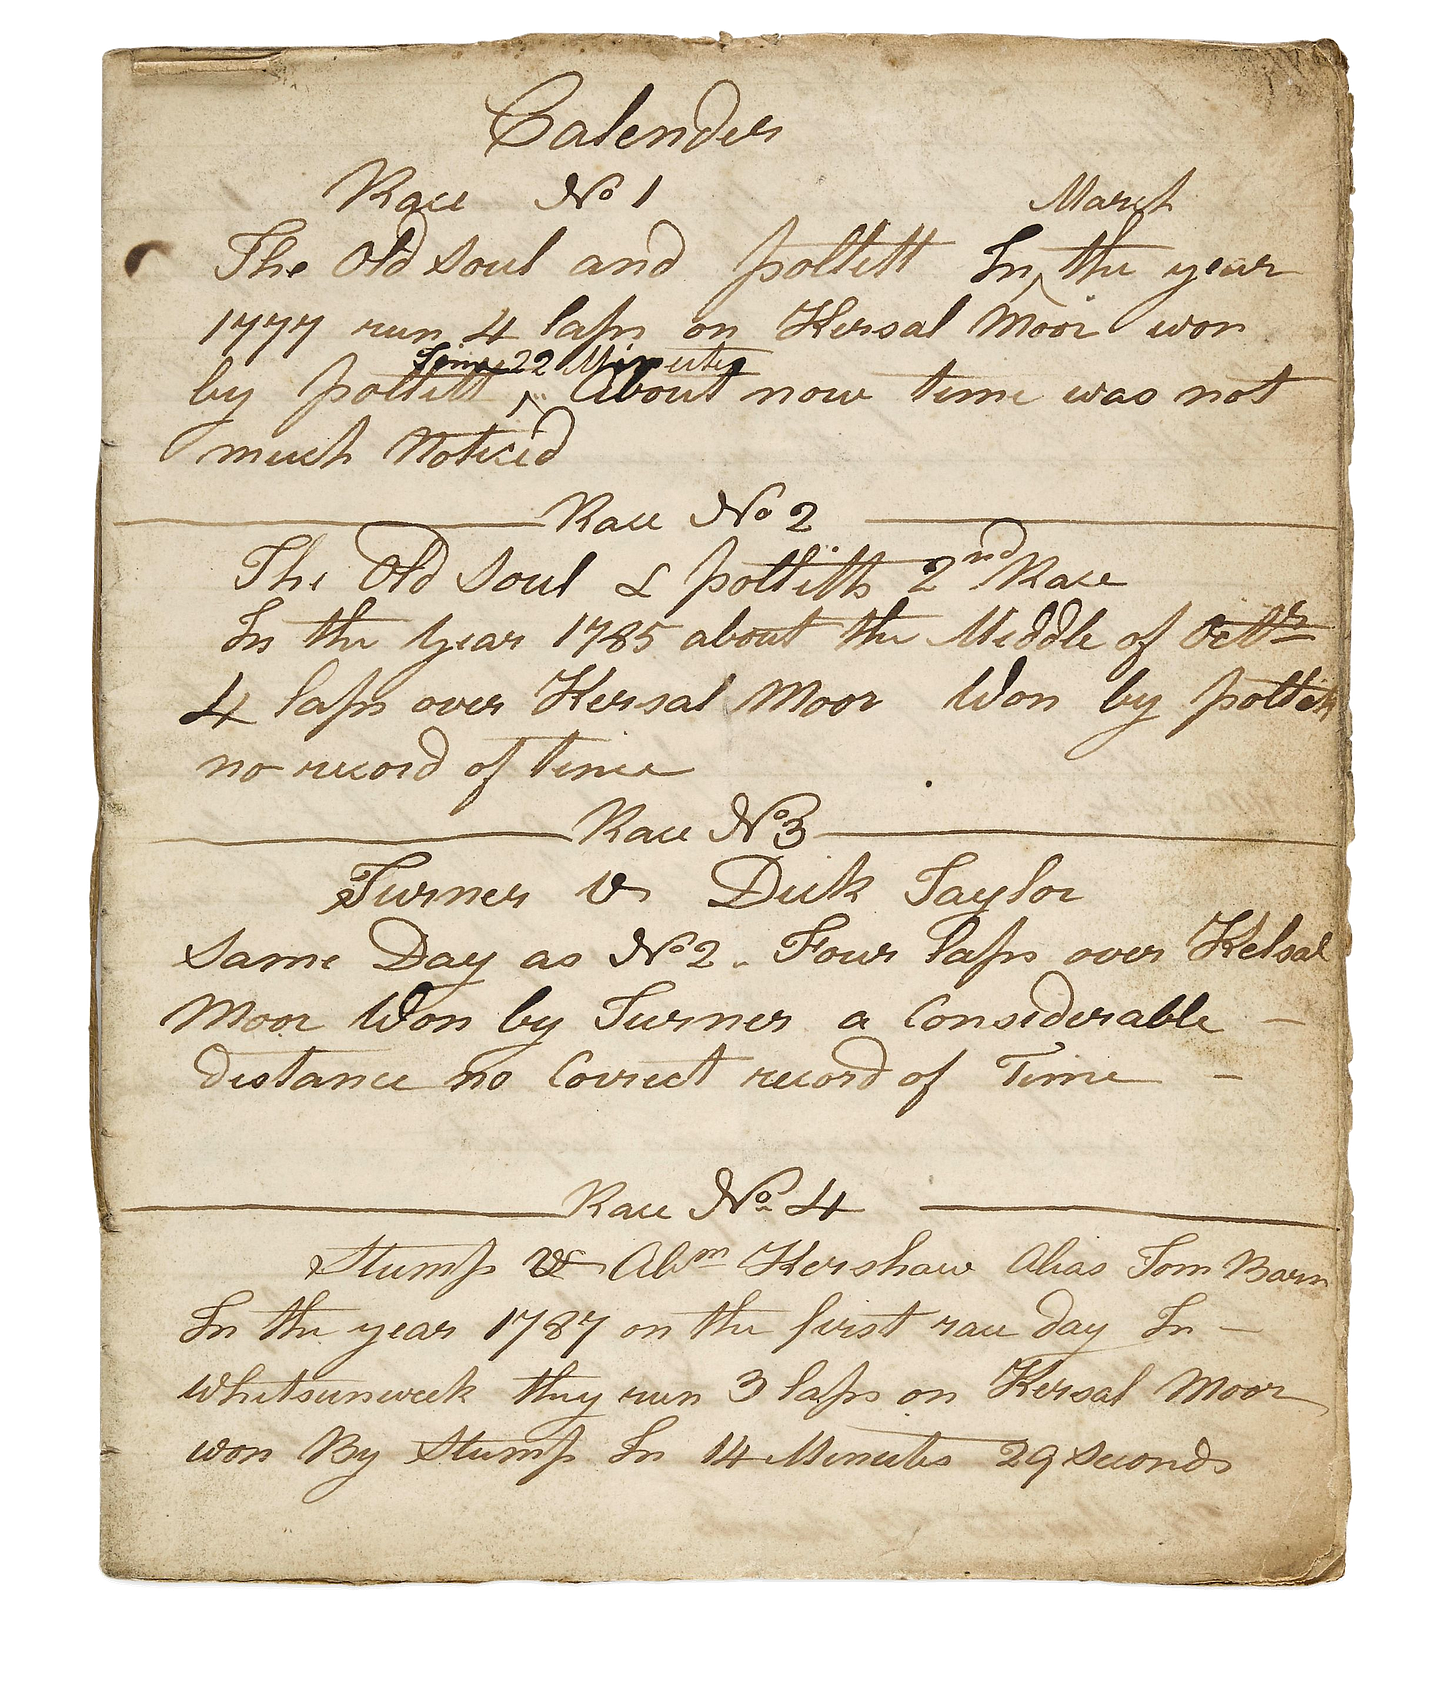 Calender
Race No 1
March
The Old Soul and pollitt In ‸ the year
1777 run 4 laps on Kersal Moor won
Time 22 Minutes
by pollitt ‸ About now time was not
much Noticed
Race No 2
The Old Soul & pollitts 2nd Race
In the year 1785 about the Middle of Octbr
4 laps over Kersal Moor Won by pollitt
no record of time
Race No 3
Turner v Dick Taylor
Same Day as No 2 - Four laps over Kelsal
Moor Won by Turner a Considerable -
distance no Correct record of Time -
Race No 4
Stump vs Abm Kershaw Alias Tom Barn
In the year 1787 on the first race day In -
Whitsunweek they run 3 laps on Kersal Moor
won By Stump In 14 Minutes 29 Seconds